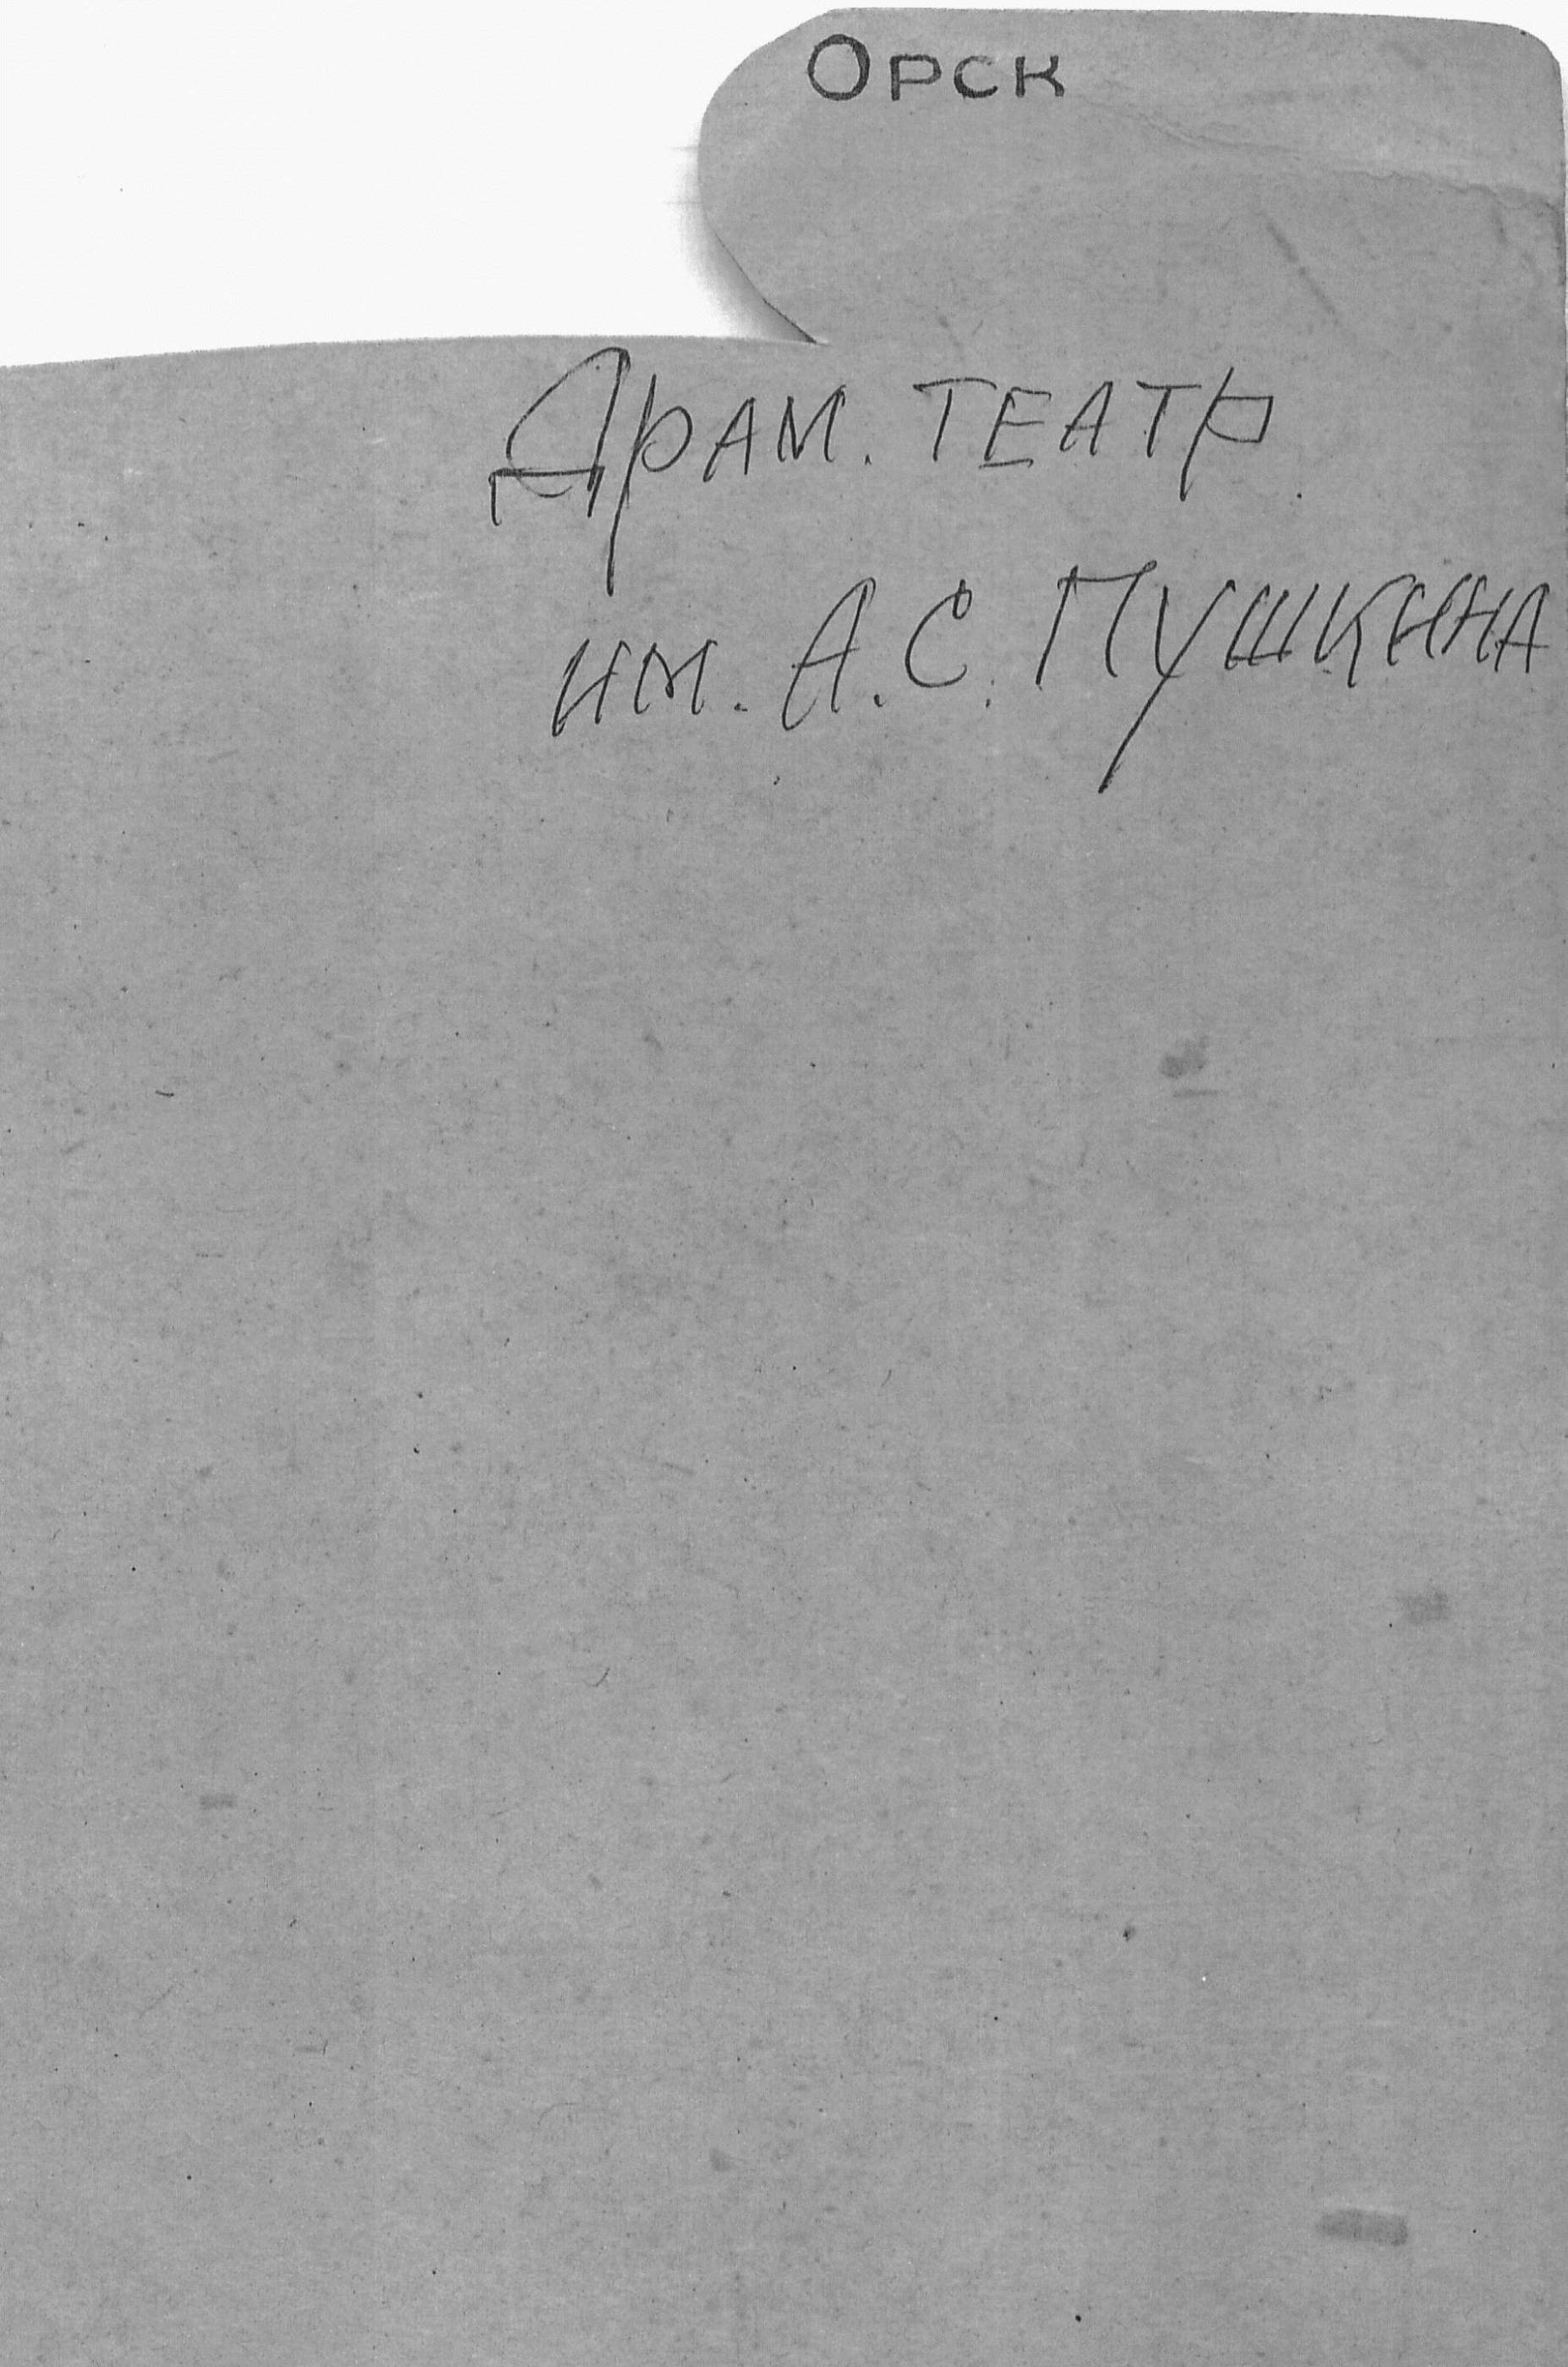 Орск
Драм. ТЕАТР.
им. А.С. ПУШКИНА